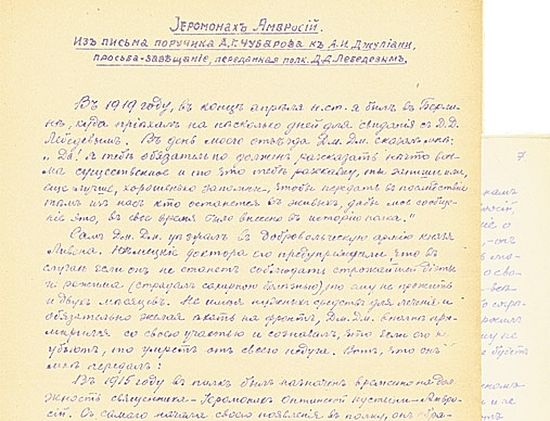 Іеромонахъ Амвросій.
Изъ письма поручика А.Г. Чубарова къ А.И. Джуліани,
просьба-завѣщаніе, переданная полк. Д.Д. Лебедевымъ.
Въ 1919 году, въ концѣ апрѣля н.ст. я былъ въ Берли-
нѣ, куда пріѣхалъ на нѣсколько дней для свиданія съ Д.Д.
Лебедевымъ. Въ день моего отъѣзда Дм. Дм. сказалъ мнѣ:
"Да! Я тебѣ обязательно долженъ разсказать нѣчто весь-
ма существенное и то, что тебѣ разскажу, ты запиши или,
еще лучше, хорошенько запомни, чтобы передать впослѣдствіи
тѣмъ изъ насъ кто останется въ живыхъ, дабы мое сообще-
ніе это, въ свое время было внесено въ исторію полка."
Самъ Дм. Дм. уѣзжалъ въ Добровольческую армію князя
Ливена. Нѣмецкіе доктора его предупреждали, что въ
случаѣ если онъ не станетъ соблюдать строжайшей діэты
и режима (страдалъ сахарной болѣзнью), то ему не прожить
и двухъ мѣсяцевъ. Не имѣя нужныхъ средствъ для леченія и
обязательно желая ѣхать на фронтъ, Дм. Дм. вполнѣ при-
мирился со своею участью и сознавалъ, что если его не
убьютъ, то умретъ отъ своего недуга. Вотъ, что онъ
мнѣ передалъ:
Въ 1915 году въ полкъ былъ назначенъ временно на дол-
жность священника - Іеромонахъ Оптинской пустыни - Амвро-
сій. Съ самаго начала своего появленія въ полку, онъ обра-
7